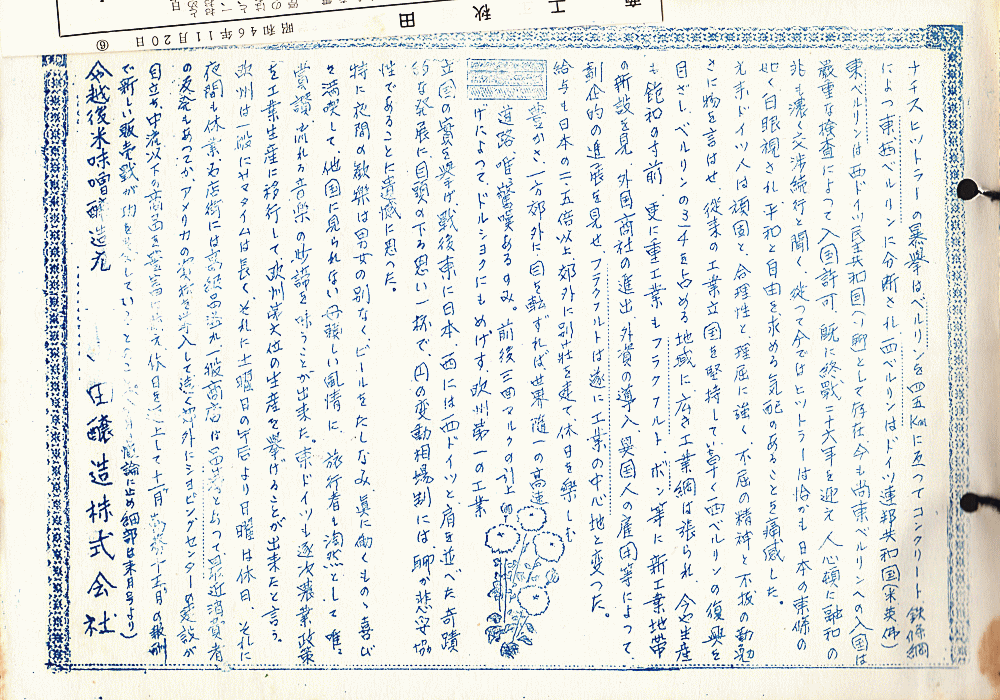 ナチスヒットラーの暴挙はベルリンを四五Kmに亙ってコンクリート鉄條網
によつ東西ベルリンに分断され西ベルリンはドイツ連邦共和国(米英仏)
東ベルリンは西ドイツ民主共和国(ソ聯)として存在、今も尚東ベルリンへの入国は
厳重な検査によつて入国許可、既に終戦二十六年を迎え人心頓に融和の
兆も濃く交渉続行と聞く、従つて今ではヒットラーは恰かも日本の東條の
如く白眼視され平和と自由を求める気配のあることを痛感した。
元来ドイツ人は頑固と、合理性と理屈に強く、不屈の精神と不抜の勤勉
さに物を言はせ、従来の工業立国を堅持している 早く西ベルリンの復興を
目ざし、ベルリンの3/4を占める地域に広き工業網は張られ、今や生産
も飽和の寸前、更に重工業もフランクフルト、ボン等に新工業地帯
の新設を見、外国商社の進出、外資の導入、異国人の雇用等によつて、
劃企的の進展を見せ、フラクフルトは遂に工業の中心地と変つた。
給与も日本の二・五倍以上、郊外に別荘を建て休日を楽しむ
豊かさ、一方郊外に目を転ずれば世界随一の高速
道路唯驚嘆あるのみ。前後三回マルクの引上
げによつてドルショクにもめげす欧州第一の工業
立国の実を挙げ戦後東に日本、西には西ドイツと肩を並べた奇蹟
的な発展に目頭の下る思い一杯で、円の変動相場制には聊か悲妥協
性であることに遺憾に思った。
特に夜間の歓楽は男女の別なくビールをたしなみ真に働くもの、喜び
を満喫して、他国に見られない母頼しい風情に、旅行者も陶然として唯
賞讃、流れる音楽の妙諦を味うことが出来た。東ドイツも逐次農業政策
を工業生産に移行して欧州第大位の生産を挙げることが出来たと言う。
欧州は一般にサマタイムは長く、それに土曜日の午后より日曜は休日、それに
夜間も休業、名店街には高級品溢れ一般商店は
って最近消費者
の反発もあつてか、アメリカの
を導入して遠く郊外にショピングセンターの建設が
目立ち、中流以下の商品を
休日を
て十一月
の報酬
で新しい販売戦が功を
していっ
概論に止め細部は来月号より)
越後米味噌醸造元
庄醸造株式会社
昭和46年11月20日
⑥
秋田